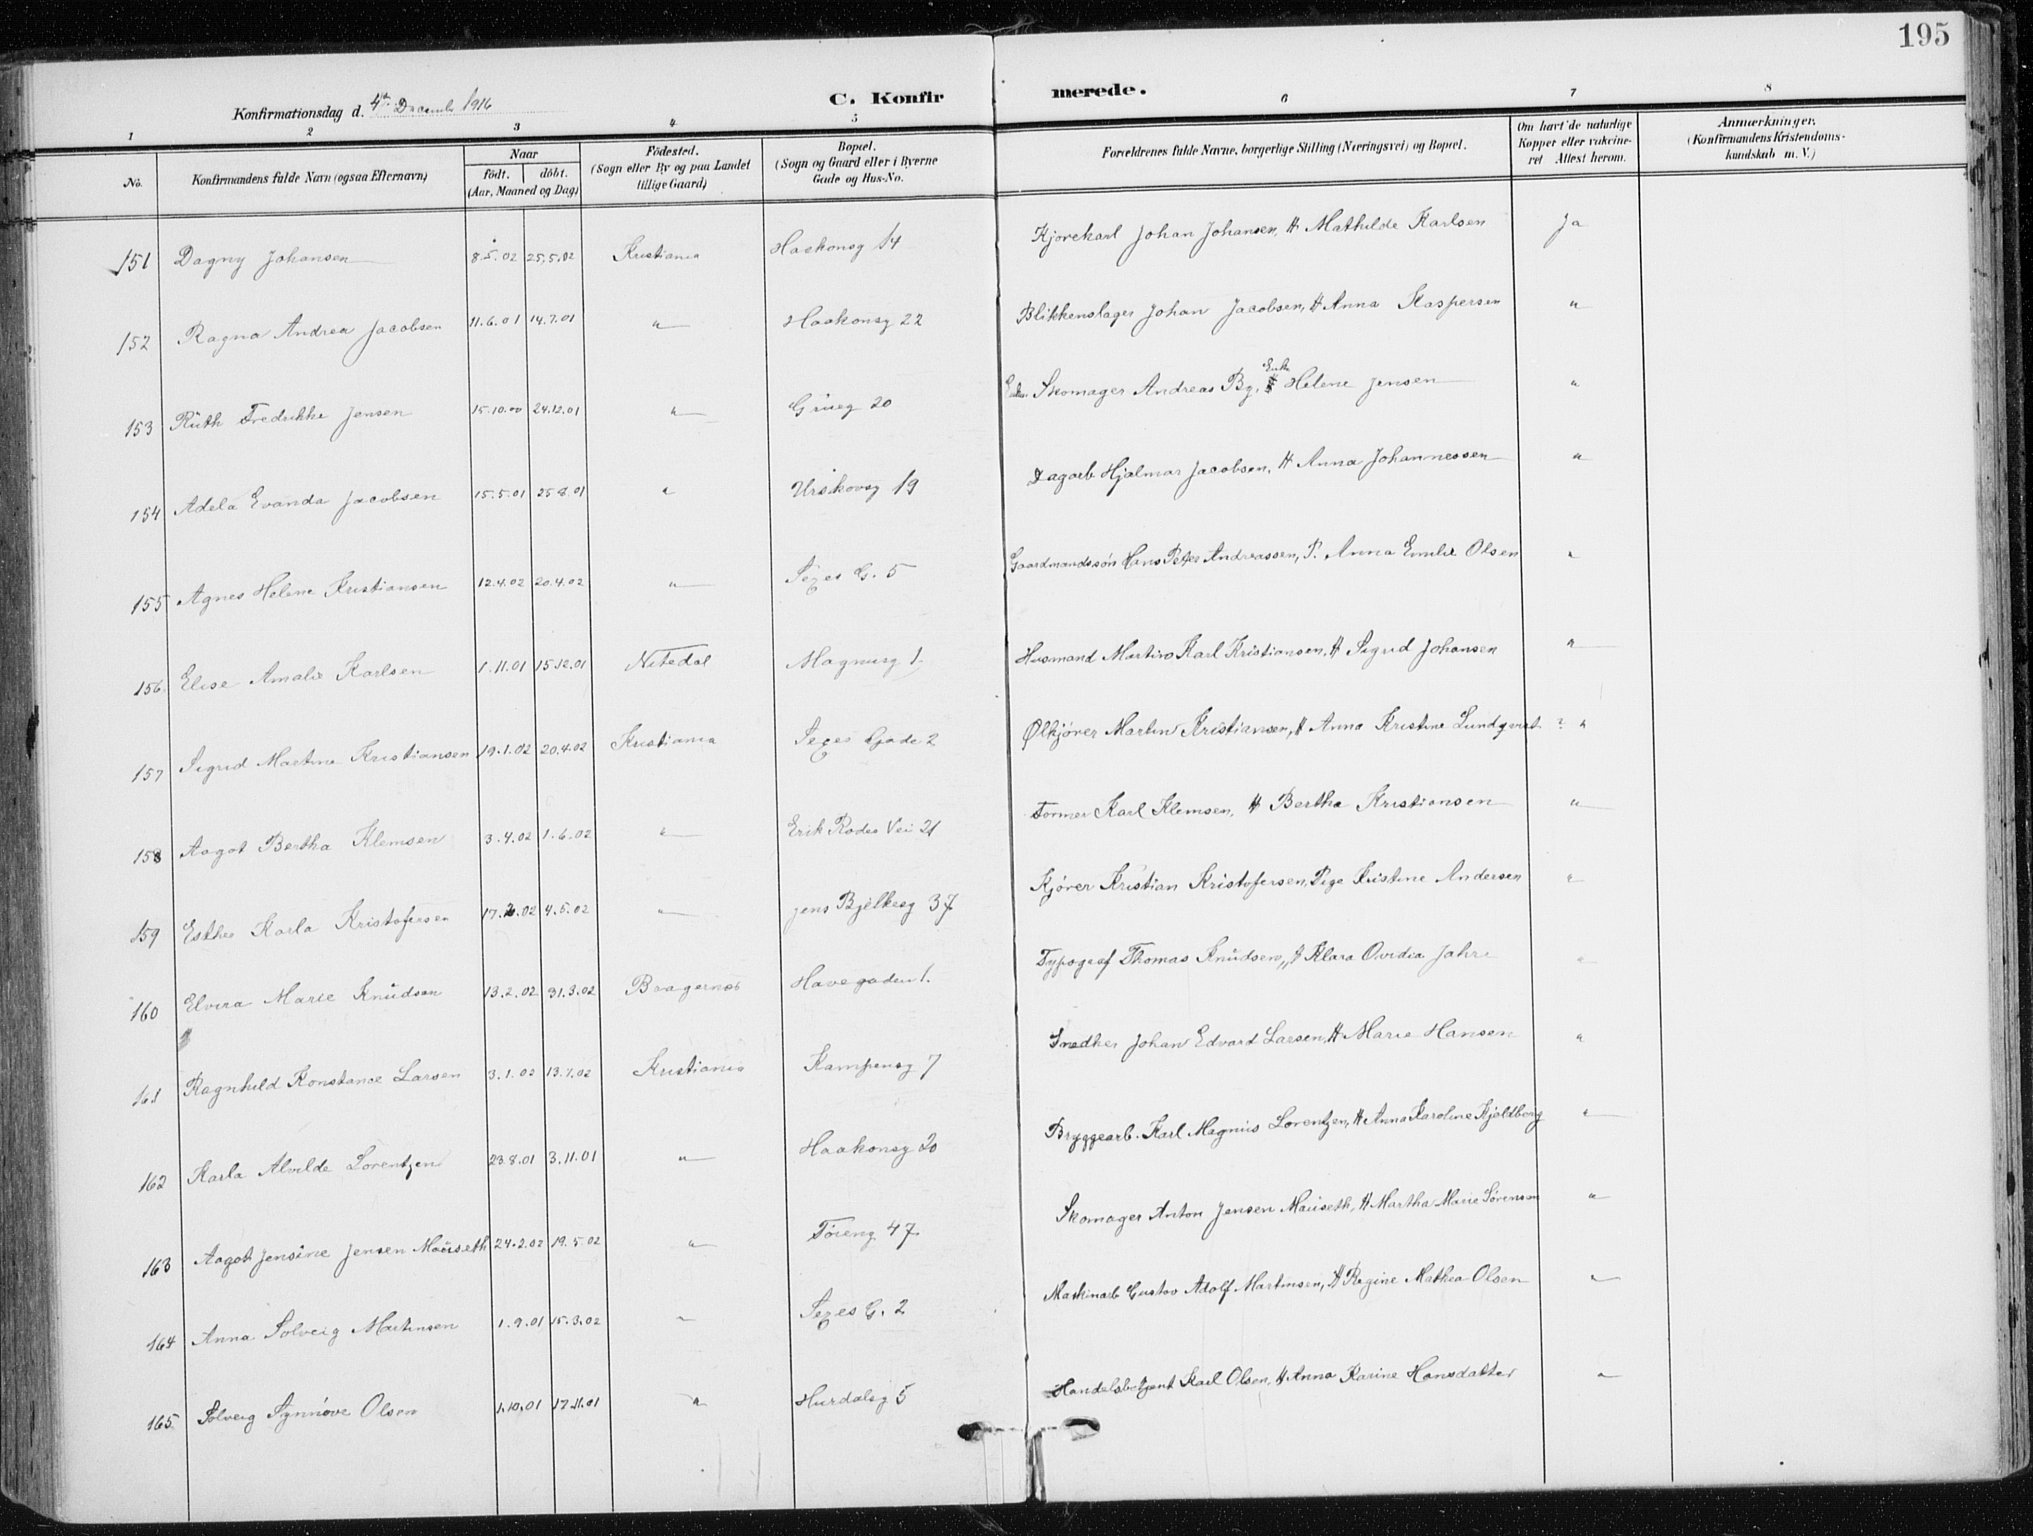 195
Konfirmationsdag d. 4de December 1916 C. Konfirmerede.
1 2 3 4 5 6 7 8
No. Konfirmandens fulde Navn (ogsaa Efternavn) Naar født. døbt. (Aar, Maaned og Dag) Fødested. (Sogn eller By og paa Landet tillige Gaard) Bopæl. (Sogn og Gaard eller i Byerne Gade og Hus-No. Forældrenes fulde Navne, borgerlige Stilling (Næringsvei) og Bopæl. Om havt de naturlige Kopper eller vakcineret Attest herom. Anmærkninger. (Konfirmandens Kristendomskundskab m. V.)
151 Dagny Johansen 8.5.02 25.5.02 Kristiania Haakonsg 14 Kjørekarl Johan Johansen, H Mathilde Karlsen Ja
152 Ragna Andrea Jacobsen 11.6.01 14.7.01 " Haakonsg 22 Blikkenslager Johan Jacobsen, H Anna Kaspersen "
153 Ruth Fredrikke Jensen 15.10.00 24.12.01 " Grüeg 20 Skomager Andreas By, Enke Helene Jensen "
154 Adela Evanda Jacobsen 15.5.01 25.8.01 " Urskovsg 19 Dagarb Hjalmar Jacobsen, H Anna Johannessen "
155 Agnes Helene Kristiansen 12.4.02 20.4.02 " Sexes G. 5 Gaardmandssøn Hans Peter Andreassen, P. Anna Emilie Olsen "
156 Elise Amalie Karlsen 1.11.01 15.12.01 Nitedal Magnusg 1. Husmand Martin Karl Kristiansen, H Sigrid Johansen "
157 Sigrid Martine Kristiansen 19.1.02 20.4.02 Kristiania Sexes Gade 2 Ølkjører Martin Kristiansen, H Anna Kristine Lundqvist ? "
158 Aagot Bertha Klemsen 3.4.02 1.6.02 " Erik Rodes Vei 21 Former Karl Klemsen, H Bertha Kristiansen "
159 Esther Karla Kristofersen 17.2.02 4.5.02 " Jens Bjelkesg 37. Kjører Kristian Kristofersen, Pige Kristine Andersen "
160 Elvira Marie Knudsen 13.2.02 31.3.02 Bragernes Havegaden 1. Typograf Thomas Knudsen, H Klara Ovidia Jahre "
161 Ragnhild Konstance Larsen 3.1.02 13.7.02 Kristiania Kampensg 7 Snedker Johan Edvard Larsen, H Marie Hansen "
162 Karla Alvilde Lorentzen 23.8.01 3.11.01 " Haakonsg 20 Bryggearb. Karl Magnus Lorentzen, H Anna Karoline Kjeldberg "
163 Aagot Jensine Jensen Mauseth 24.2.02 19.5.02 " Tøieng 47. Skomager Anton Jensen Mauseth, H Martha Marie Sørensen "
164 Anna Solveig Martinsen 1.9.01 15.3.02 " Sexes G. 2 Maskinarb Gustav Adolf Martinsen, H Regine Mathea Olsen "
165 Solveig Synnøve Olsen 1.10.01 17.11.01 " Hurdalsg 5 Handelsbetjent Karl Olsen, H Anna Karine Hansdatter "